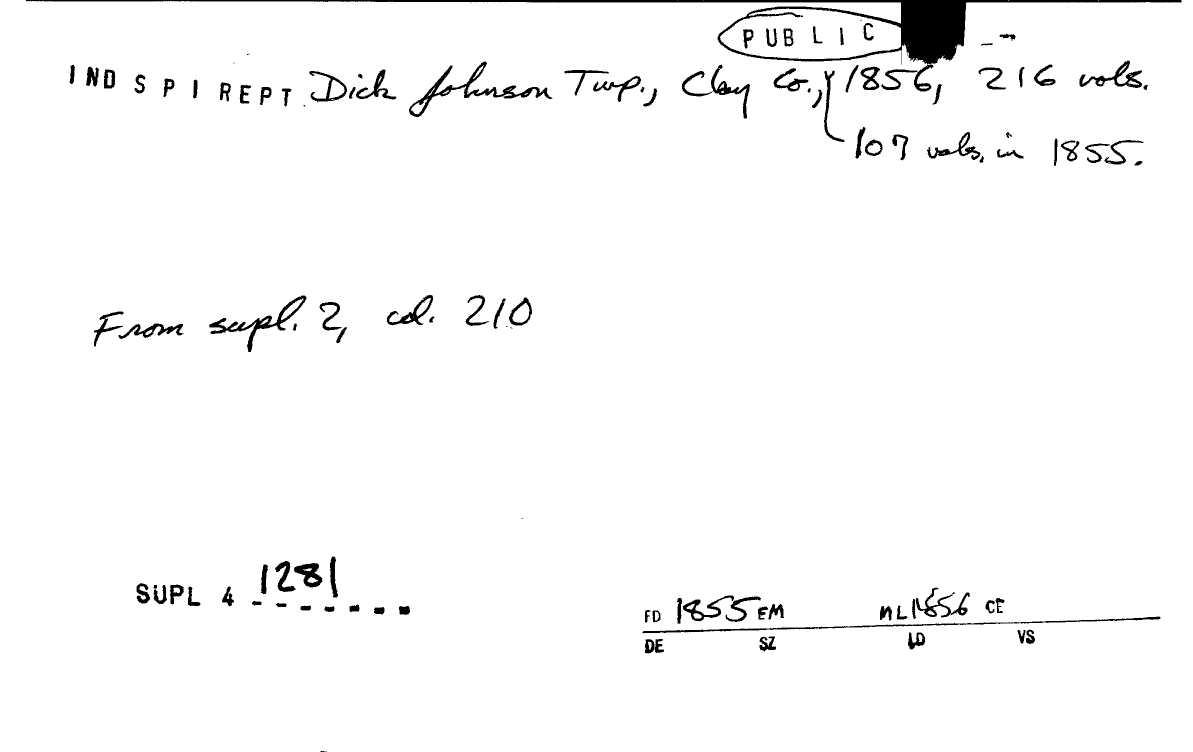 PUBLIC
IND SPI REPT Dick Johnson Twp., Clay Co., 1856, 216 vols.
107 vols. in 1855.
From supl. 2, col. 210
SUPL 4 1281
FD 1855 EM ML 1856 CE
DE SZ LD VS